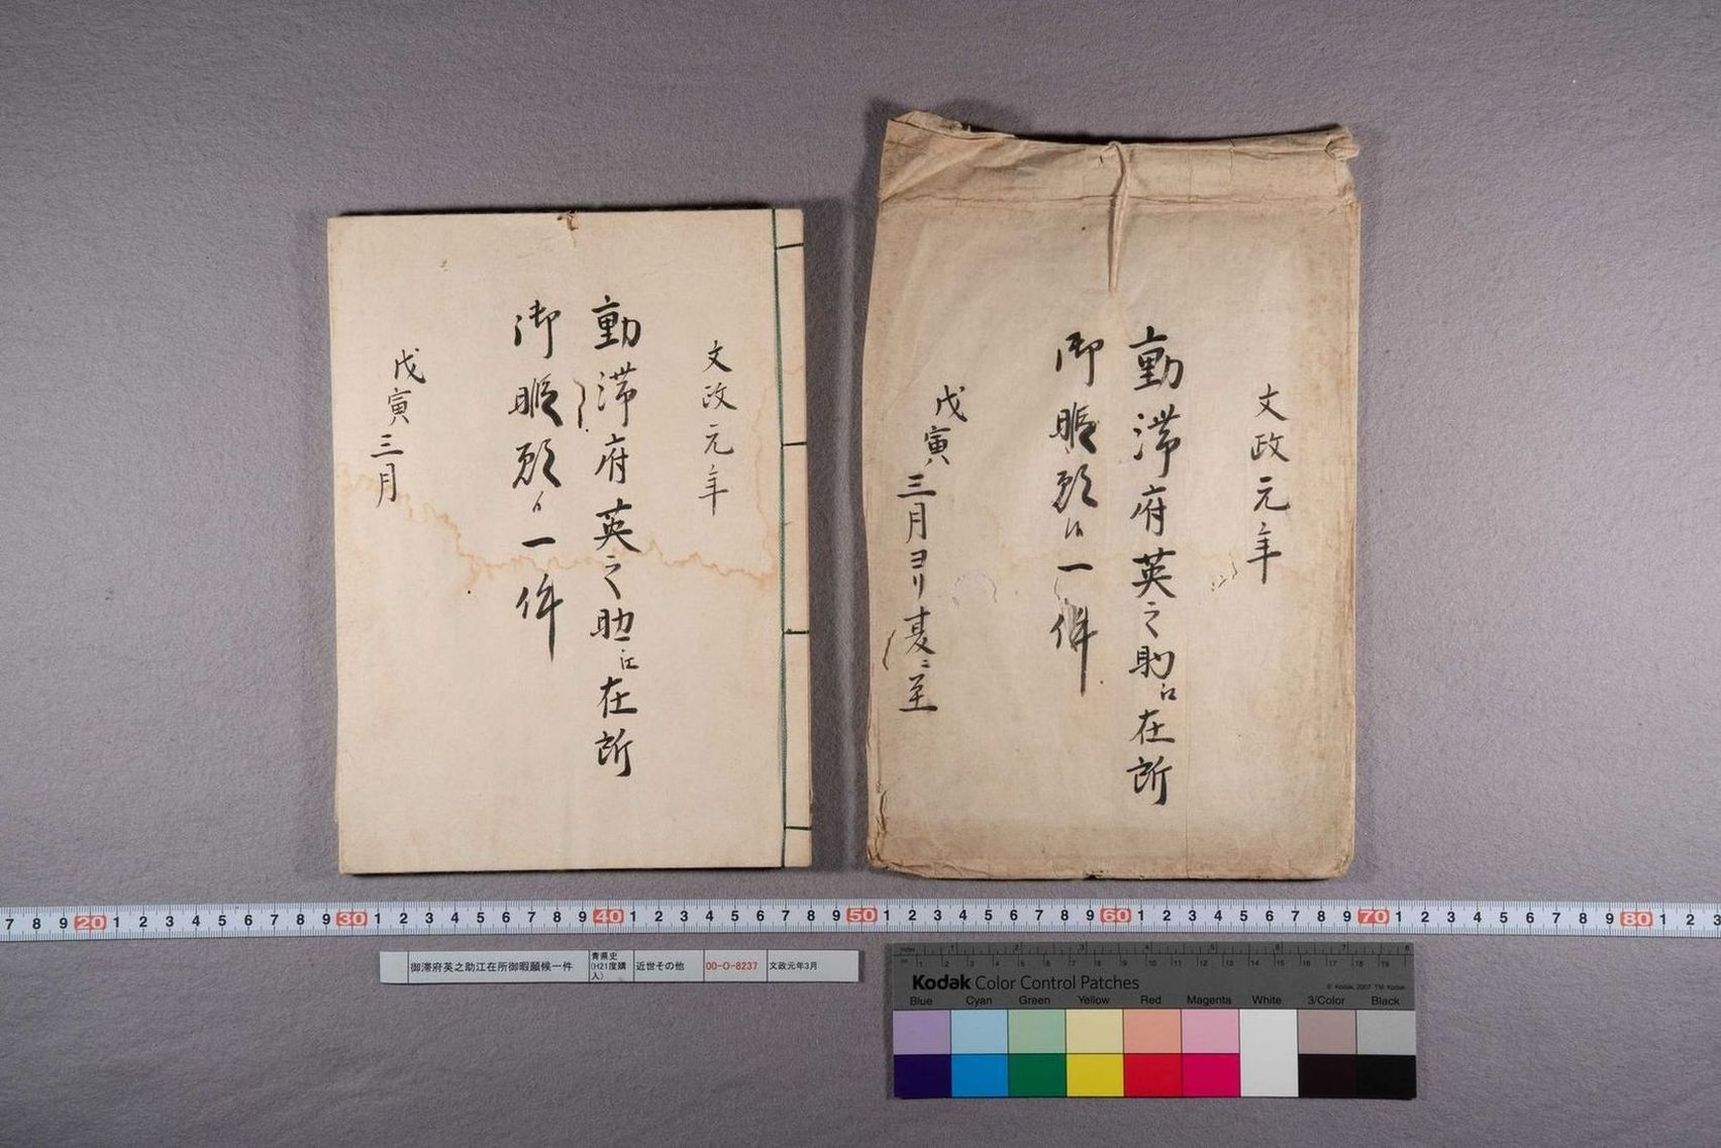 文政元年
勤滞府英之助江在所
御暇願候一件
戊寅三月
文政元年
勤滞府英之助江在所
御暇願候一件
戊寅三月ヨリ夏ニ至
7 8 9 20 1 2 3 4 5 6 7 8 9 30 1 2 3 4 5 6 7 8 9 40 1 2 3 4 5 6 7 8 9 50 1 2 3 4 5 6 7 8 9 60 1 2 3 4 5 6 7 8 9 70 1 2 3 4 5 6 7 8 9 80 1 2 3
御滞府英之助江在所御暇願候一件
青県史
(H21度購
入)
近世その他
00-O-8237
文政元年3月
Kodak Color Control Patches
© Kodak, 2007 TM: Kodak
Blue Cyan Green Yellow Red Magenta White 3/Color Black